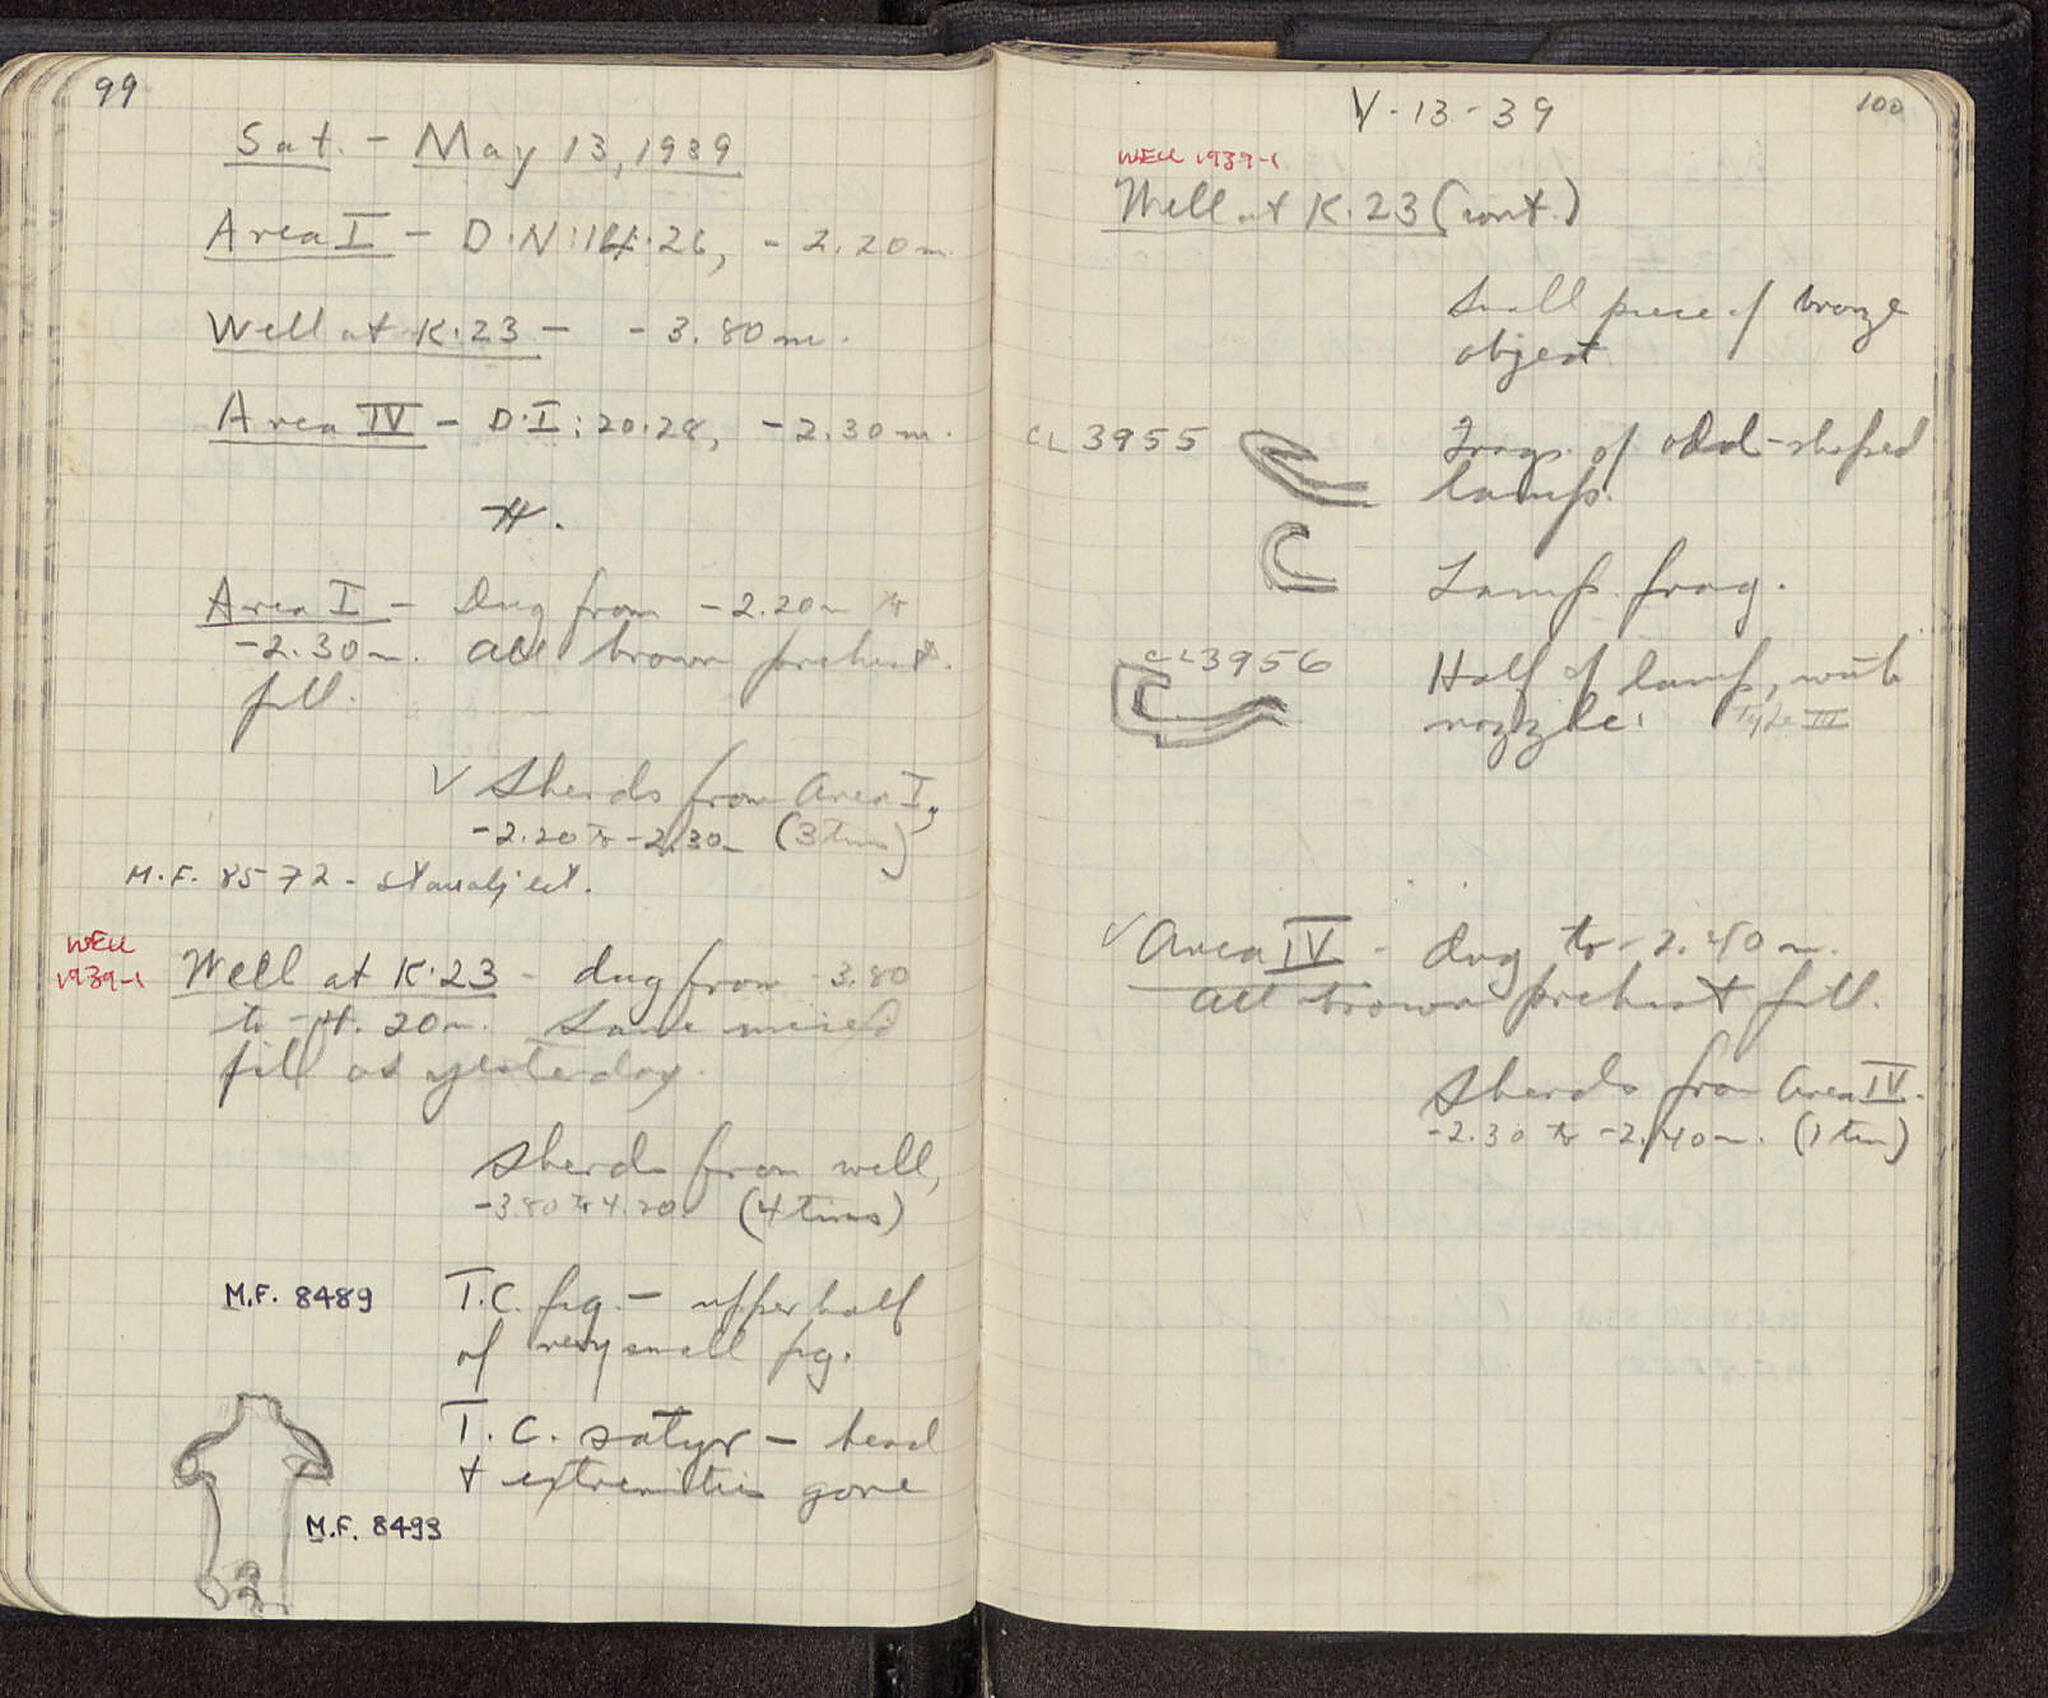 99
Sat. - May 13, 1939
Area I - D·N:14·26, -2.20m.
Well at K·23 - -3.80m.
Area IV - D·I:20·28, -2.30m.
Area I - Dug from -2.20m to
-2.30m. All brown prehist.
fill.
√ Sherds from Area I,
-2.20 to -2.30m (3 tins)
M.F. 8572 - stone object.
WELL
1939-1
Well at K·23 - dug from -3.80
to -4.20m. Same mixed
fill as yesterday.
Sherds from well,
-3.80 to 4.20. (4 tins)
M.F. 8489
T.C. fig. - upper half
of very small fig.
T.C. satyr - head
+ extremities gone
M.F. 8493
100
V-13-39
WELL 1939-1
Well at K·23 (cont.)
Small piece of bronze
object
CL 3955
Frags. of odd-shaped
lamp.
Lamp frag.
CL 3956
Half of lamp, with
nozzle. Type III
√ Area IV - dug to -2.40m.
All brown prehist fill.
Sherds from Area IV.
-2.30 to -2.40m. (1 tin)